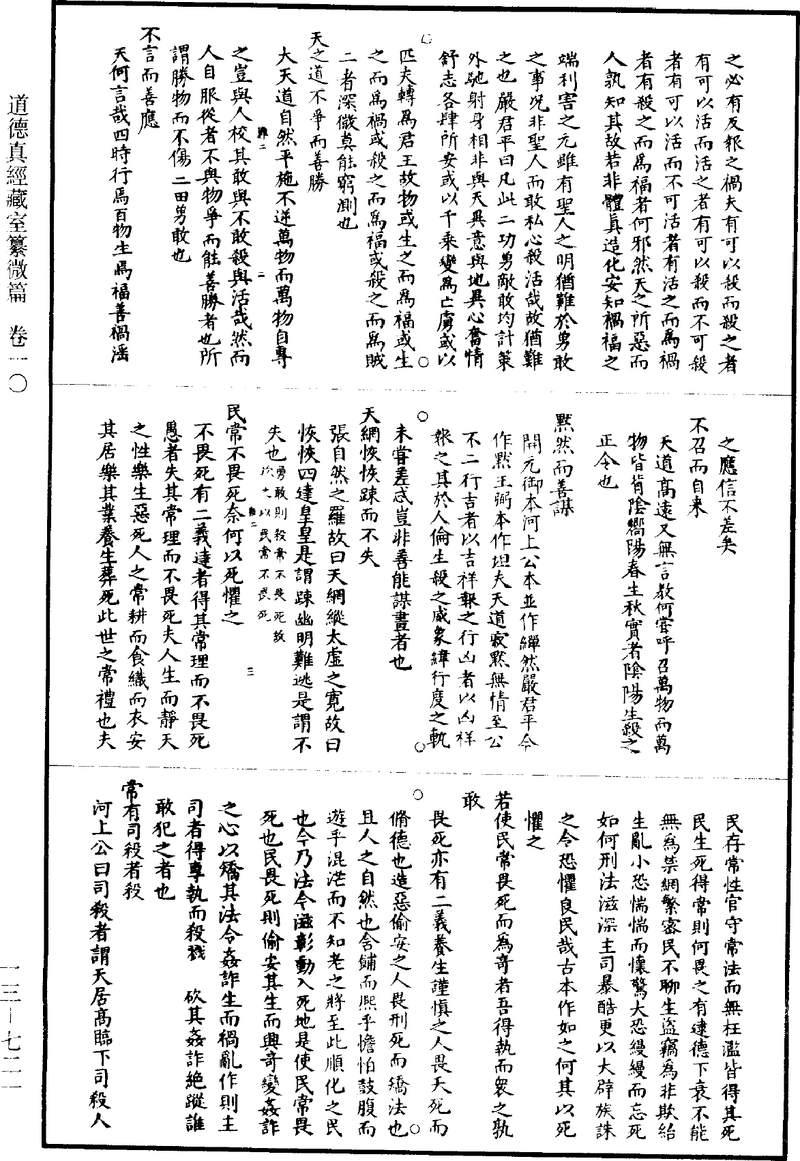 道德真經藏室纂微篇　卷一〇
之必有反報之禍夫有可以殺而殺之者
有可以活而活之者有可以殺而不可殺
者有可以活而不可活者有活之而為禍
者有殺之而為福者何邪然天之所惡而
人孰知其故若非體真造化安知禍福之
端利害之元雖有聖人之明猶難於勇敢
之事況非聖人而敢私心殺活哉故猶難
之也嚴君平曰凡此二功勇敵敢均計策
外馳射身相非與天異意與地異心奮情
舒志各肆所安或以千乘變為亡虜或以
匹夫轉為君王故物或生之而為福或生
之而為禍或殺之而為福或殺之而為賊
二者深微真能窮測也
天之道不爭而善勝
大天道自然平施不逆萬物而萬物自尊
之豈與人校其敢與不敢殺與活哉然而
人自服從者不與物爭而能善勝者也所
謂勝物而不傷二田勇敢也
不言而善應
天何言哉四時行焉百物生焉福善禍淫
之應信不差矣
不召而自來
天道高遠又無言教何嘗呼召萬物而萬
物皆背陰嚮陽春生秋實者陰陽生殺之
正令也
默然而善謀
開元御本河上公本並作繟然嚴君平今
作默王弼本作坦夫天道寂默無情至公
不二行吉者以吉祥報之行凶者以凶祥
報之其於人倫生殺之威象緯行度之軌
未嘗差忒豈非善能謀畫者也
天網恢恢踈而不失
張自然之羅故曰天網縱太虛之寬故曰
恢恢四達皇皇是謂踈幽明難逃是謂不
失也勇敢則殺常不畏死故
次之以民常不畏死
民常不畏死奈何以死懼之
不畏死有二義達者得其常理而不畏死
愚者失其常理而不畏死夫人生而靜天
之性樂生惡死人之常耕而食織而衣安
其居樂其業養生葬死此世之常禮也夫
民存常性官守常法而無枉濫皆得其死
民生死得常則何畏之有逮德下衰不能
無為禁網繁密民不聊生盜竊為非欺紿
生亂小恐惴惴而懷驚大恐縵縵而忘死
如何刑法滋深主司暴酷更以大辟族誅
之令恐懼良民哉古本作如之何其以死
懼之
若使民常畏死而為奇者吾得執而殺之孰
敢
畏死亦有二義養生謹慎之人畏天死而
脩德也造惡偷安之人畏刑死而矯法也
且人之自然也含餔而熙乎憺怕鼓腹而
遊乎混茫而不知老之將至此順化之民
也今乃法令滋彰動入死地是使民常畏
死也民畏死則偷安其生而興奇變姦詐
之心以矯其法令姦詐生而禍亂作則主
司者得專執而殺戮　欲其姦詐絕蹤誰
敢犯之者也
常有司殺者殺
河上公曰司殺者謂天居高臨下司殺人
一三—七二一